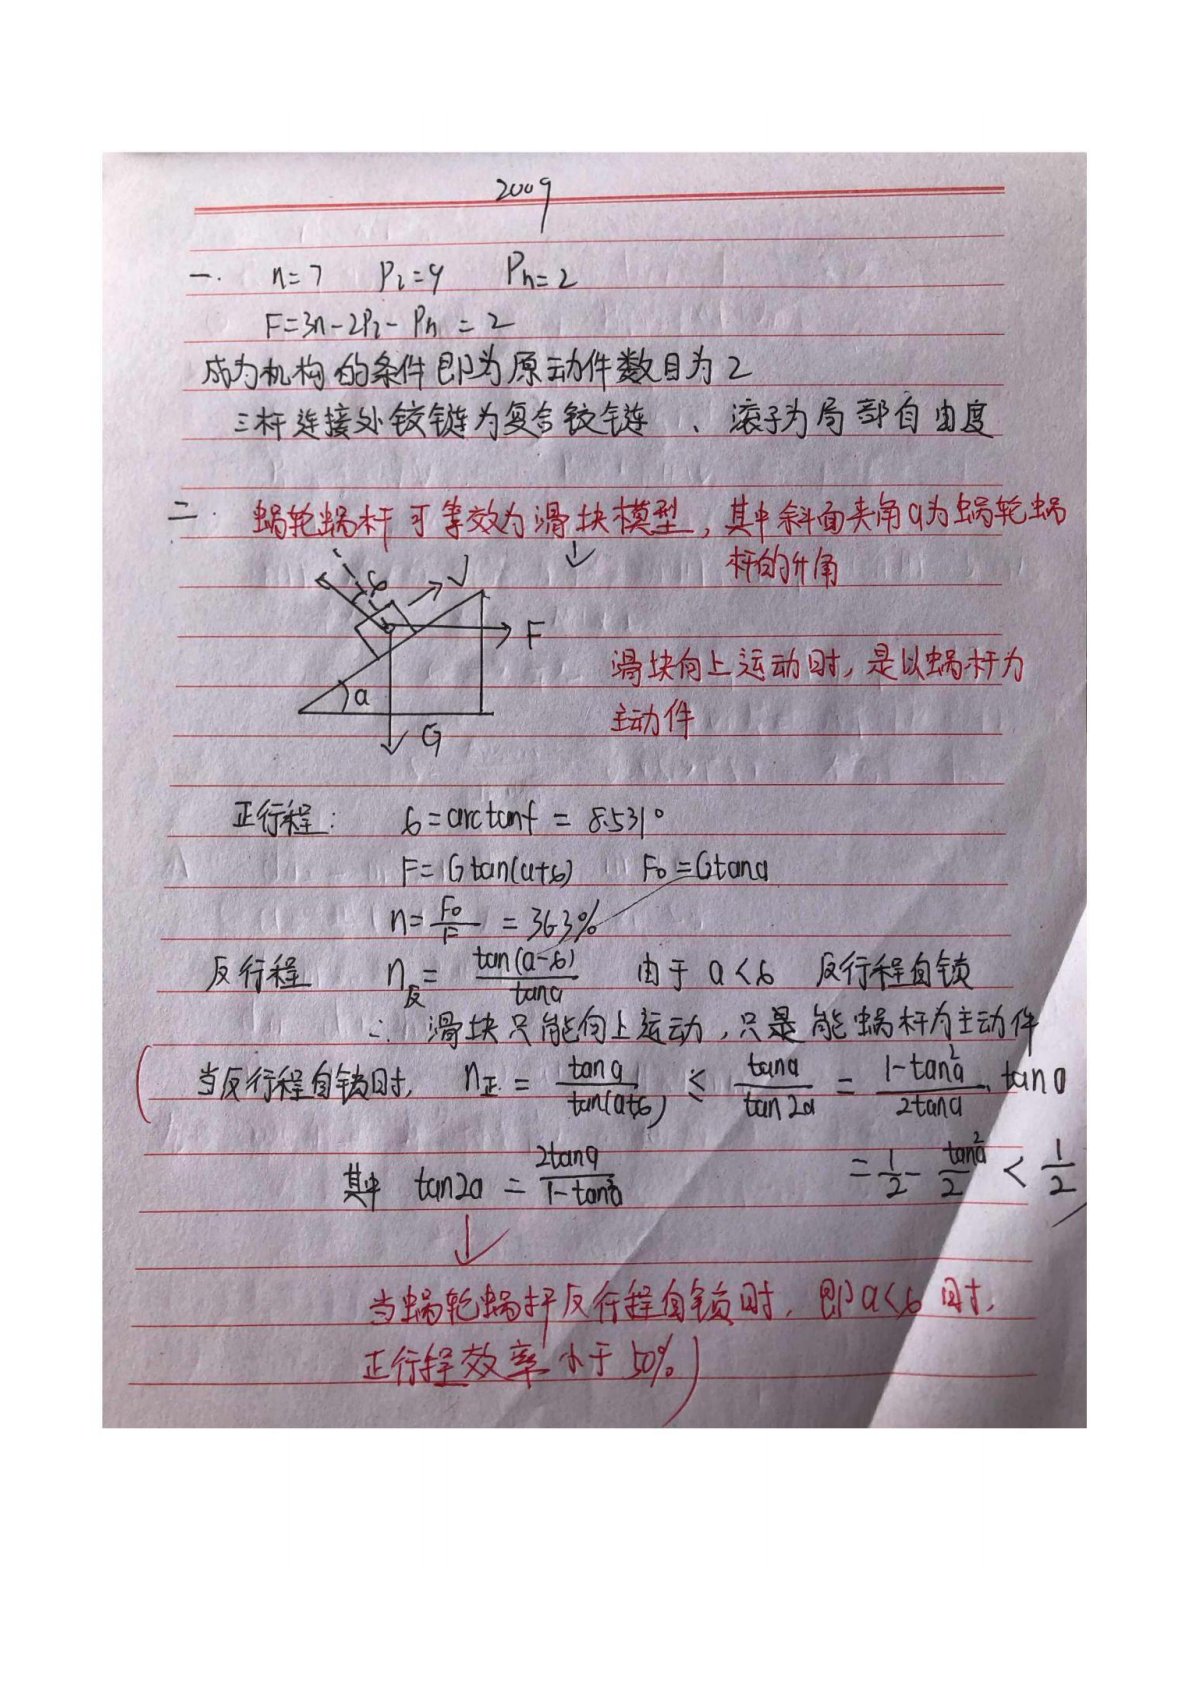 2009
一. n=7 Pl=9 Ph=2
F=3n-2Pl-Ph=2
成为机构的条件即为原动件数目为2
三杆连接处铰链为复合铰链、滚子为局部自由度
二. 蜗轮蜗杆可等效为滑块模型,其中斜面夹角α为蜗轮蜗
杆的升角
φ V
F
α
G
滑块向上运动时,是以蜗杆为
主动件
正行程: φ=arctanf=8.531°
F=Gtan(α+φ) F₀=Gtanα
η=F₀/F=36.3%
反行程 η反=tan(α-φ)/tanα 由于α<φ 反行程自锁
∴滑块只能向上运动,只是能蜗杆为主动件
(当反行程自锁时, η正.=tanα/tan(α+φ)≤tanα/tan2α=(1-tan²α)/2tanα·tanα
其中 tan2α=2tanα/(1-tan²α) =1/2-tan²α/2<1/2)
当蜗轮蜗杆反行程自锁时,即α<φ时,
正行程效率小于50%)